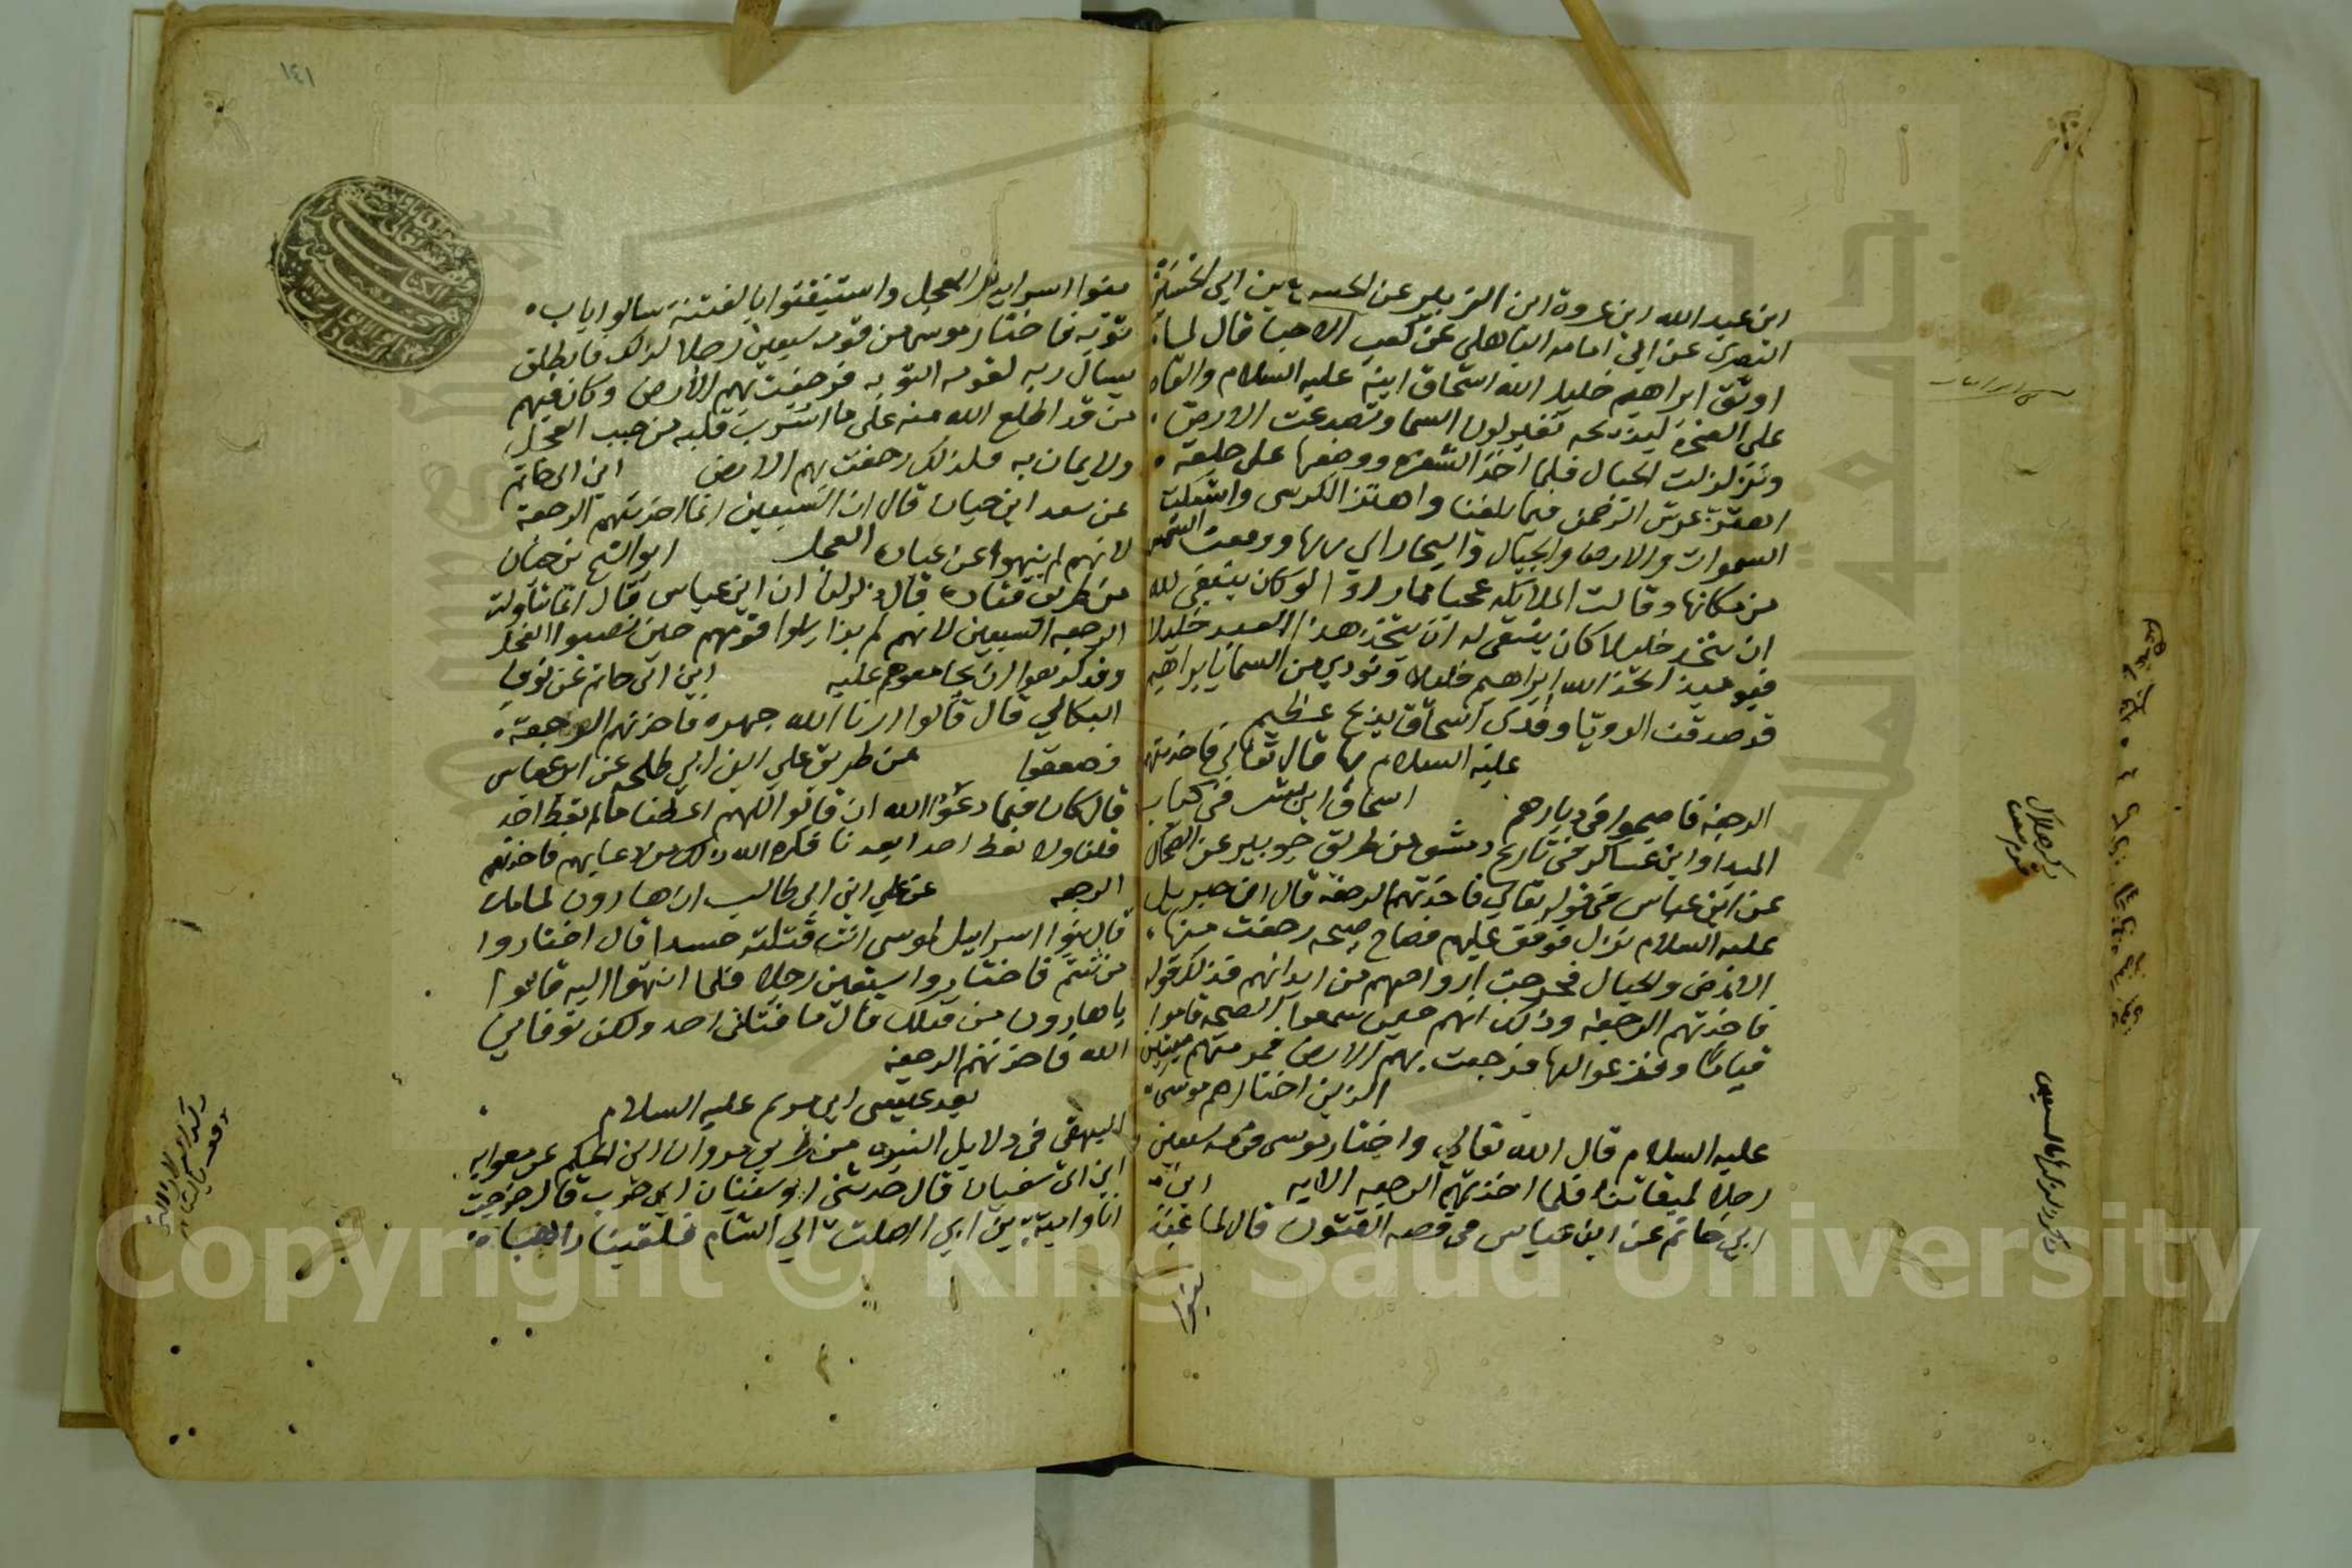 ابن عبد الله ابن عروة ابن الزبير عن الحسين ابن ابي
البصري عن ابي امامه الباهلي عن كعب الاحبار قال لما
اوثق ابراهيم خليل الله اسحاق ابنه عليه السلام والقاه
على الصخرة ليذبحه تغير لون السما وتصدعت الارض
وتزلزلت الجبال فلما اخذ الشفره ووضعها على حلقه
اهتز عرش الرحمن فيما بلغنا واهتز الكرسي واشتكت
السموات والارض والجبال والبحار الي ربها ورفعت الشمس
من مكانها وقالت الملائكه عجبا مما راوا لو كان ينبغي لله
ان يتخذ خليلا كان ينبغي له ان يتخذ هذا العبد خليلا
فيوميذ اتخذ الله ابراهيم خليلا ونودي من السما يا ابراهيم
قد صدقت الرويا وفدي اسحاق بذبح عظيم
عليه السلام قال تعالي فاخذتهم
الرجفه فاصبحوا في ديارهم اسحاق ابن بشر في كتاب
المبدا وابن عساكر في تاريخ دمشق من طريق جويبر عن الضحاك
عن ابن عباس في قوله تعالي فاخذتهم الرجفه قال ان جبريل
عليه السلام نزل فوقف عليهم فصاح صيحه رجفت منها
الارض والجبال فخرجت ارواحهم من ابدانهم فذلك قوله
فاخذتهم الرجفه وذلك انهم حين سمعوا الصيحه قاموا
قياما وفزعوا لها فرجفت بهم الارض فرمتهم ميتين
الذين اختارهم موسى
عليه السلام قال الله تعالي واختار موسى قومه سبعين
رجلا لميقاتنا فلما اخذتهم الرجفه الايه ابن
ابي حاتم عن ابن عباس في قصه الفتون قال لما عبد
بنوا
١٤١
بنوا اسرايل العجل واستيقنوا بالفتنة سالوا باب
توبه فاختار موسى من قومه سبعين رجلا لذلك فانطلق
يسال ربه لقومه التوبه فرجفت بهم الارض وكان فيهم
من قد اطلع الله منه على ما اشرب قلبه من حب العجل
ولايمان به فلذلك رجفت بهم الارض ابن ابي حاتم
عن سعد ابن حيان قال ان السبعين انما اخذتهم الرجفة
لانهم لم ينهوا عن عبادة العجل ابو الشيخ بن حيان
من طريق قتاده قال ذكر لنا ان ابن عباس قال انما تناولت
الرجفه السبعين لانهم لم يزايلوا قومهم حين نصبوا العجل
وقد كرهوا ان يجامعوهم عليه ابن ابي حاتم عن نوف
البكالي قال قالوا ارنا الله جهره فاخذتهم الرجفة
فصعقوا من طريق علي ابن ابي طلحه عن ابن عباس
قال كان فيما دعوا الله ان قالوا اللهم اعطنا ما لم تعط احد
قبلنا ولا تعط احدا بعدنا فكره الله ذلك من دعايهم فاخذتهم
الرجفه عن علي ابن ابي طالب ان هارون لما مات
قال بنوا اسرايل لموسى انت قتلته حسدا قال اختاروا
من شيتم فاختاروا سبعين رجلا فلما انتهوا اليه قالوا
يا هارون من قتلك قال ما قتلني احد ولكن توفاني
الله فاخذتهم الرجفه
بعد عيسى ابن مريم عليه السلام
البيهقي في دلايل النبوه من طريق مروان ابن الحكم عن معويه
ابن ابي سفيان قال حدثني ابو سفيان ابن حرب قال خرجت
انا وامية بن ابي الصلت الي الشام فلقينا راهبا
Copyright © King Saud University